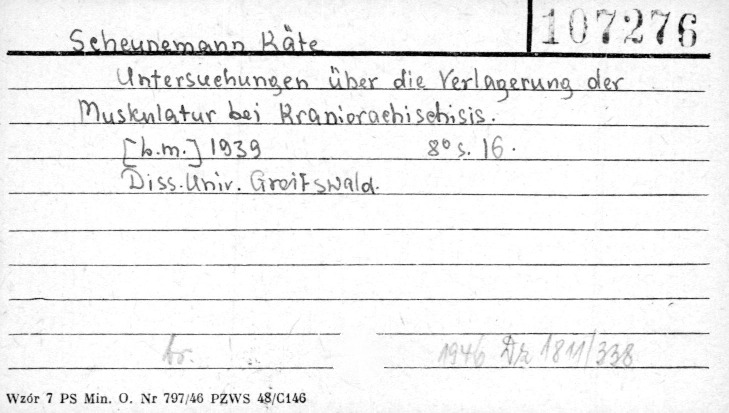 107276
Scheunemann Käte
Untersuchungen über die Verlagerung der
Muskulatur bei Kraniorachischisis.
[b.m.] 1939 8° s. 16.
Diss. Univ. Greifswald.
br. 1946 Dz 1811/338
Wzór 7 PS Min. O. Nr 797/46 PZWS 48/C146